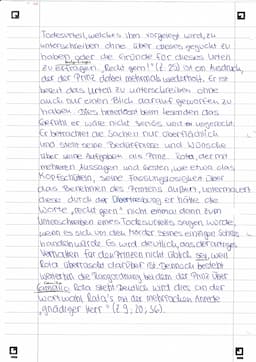 Todesurteil, welches ihm vorgelegt wird, zu
unterschreiben ohne über dieses geguckt zu
haben oder die Gründe für dieses Urteil
zu erfragen. „Recht gern!" (Z. 25) ist ein Ausdruck,
der der Prinz dabei mehrmals wiederholt. Er ist
bereit das Urteil zu unterschreiben ohne
auch nur einen Blick darauf geworfen zu
haben. Dies hinterlässt beim lesenden das
Gefühl er wäre nicht seriös und
Er betrachtet die Sachen nur oberflächlich
und stellt seine Bedürfnisse und Wünsche
über seine Aufgaben als Prinz. Rota, der mit
mehreren Aussagen und Gesten, wie etwa das
Kopfschütteln, seine Fassungslosigkeit über
das Benehmen des Prinzens äußert, untermauert
diese durch die Übertreibung er hätte die
Worte „recht gern" nicht einmal dann zum
Unterschreiben eines Todesurteils sagen würde,
wenn es sich um den Mörder seines einzigen Sohns
handeln würde. Es wird deutlich, das derartiges
Verhalten für den Prinzen nicht üblich sei, weil
Rota überrascht darüber ist. Dennoch besteht
weiterhin die Rangordnung bei dem der Prinz über
Camillo Rota steht. Deutlich wird dies an der
Wortwahl Rota's mit der mehrfachen Anrede
„gnädiger Herr" (Z. 9, 20, 36).